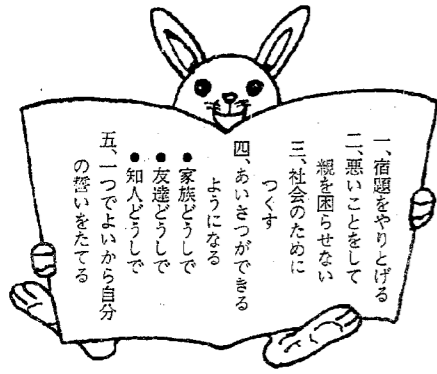 一、宿題をやりとげる
二、悪いことをして
親を困らせない
三、社会のために
つくす
四、あいさつができる
ようになる
●家族どうしで
●友達どうしで
●知人どうしで
五、一つでよいから自分
の誓いをたてる